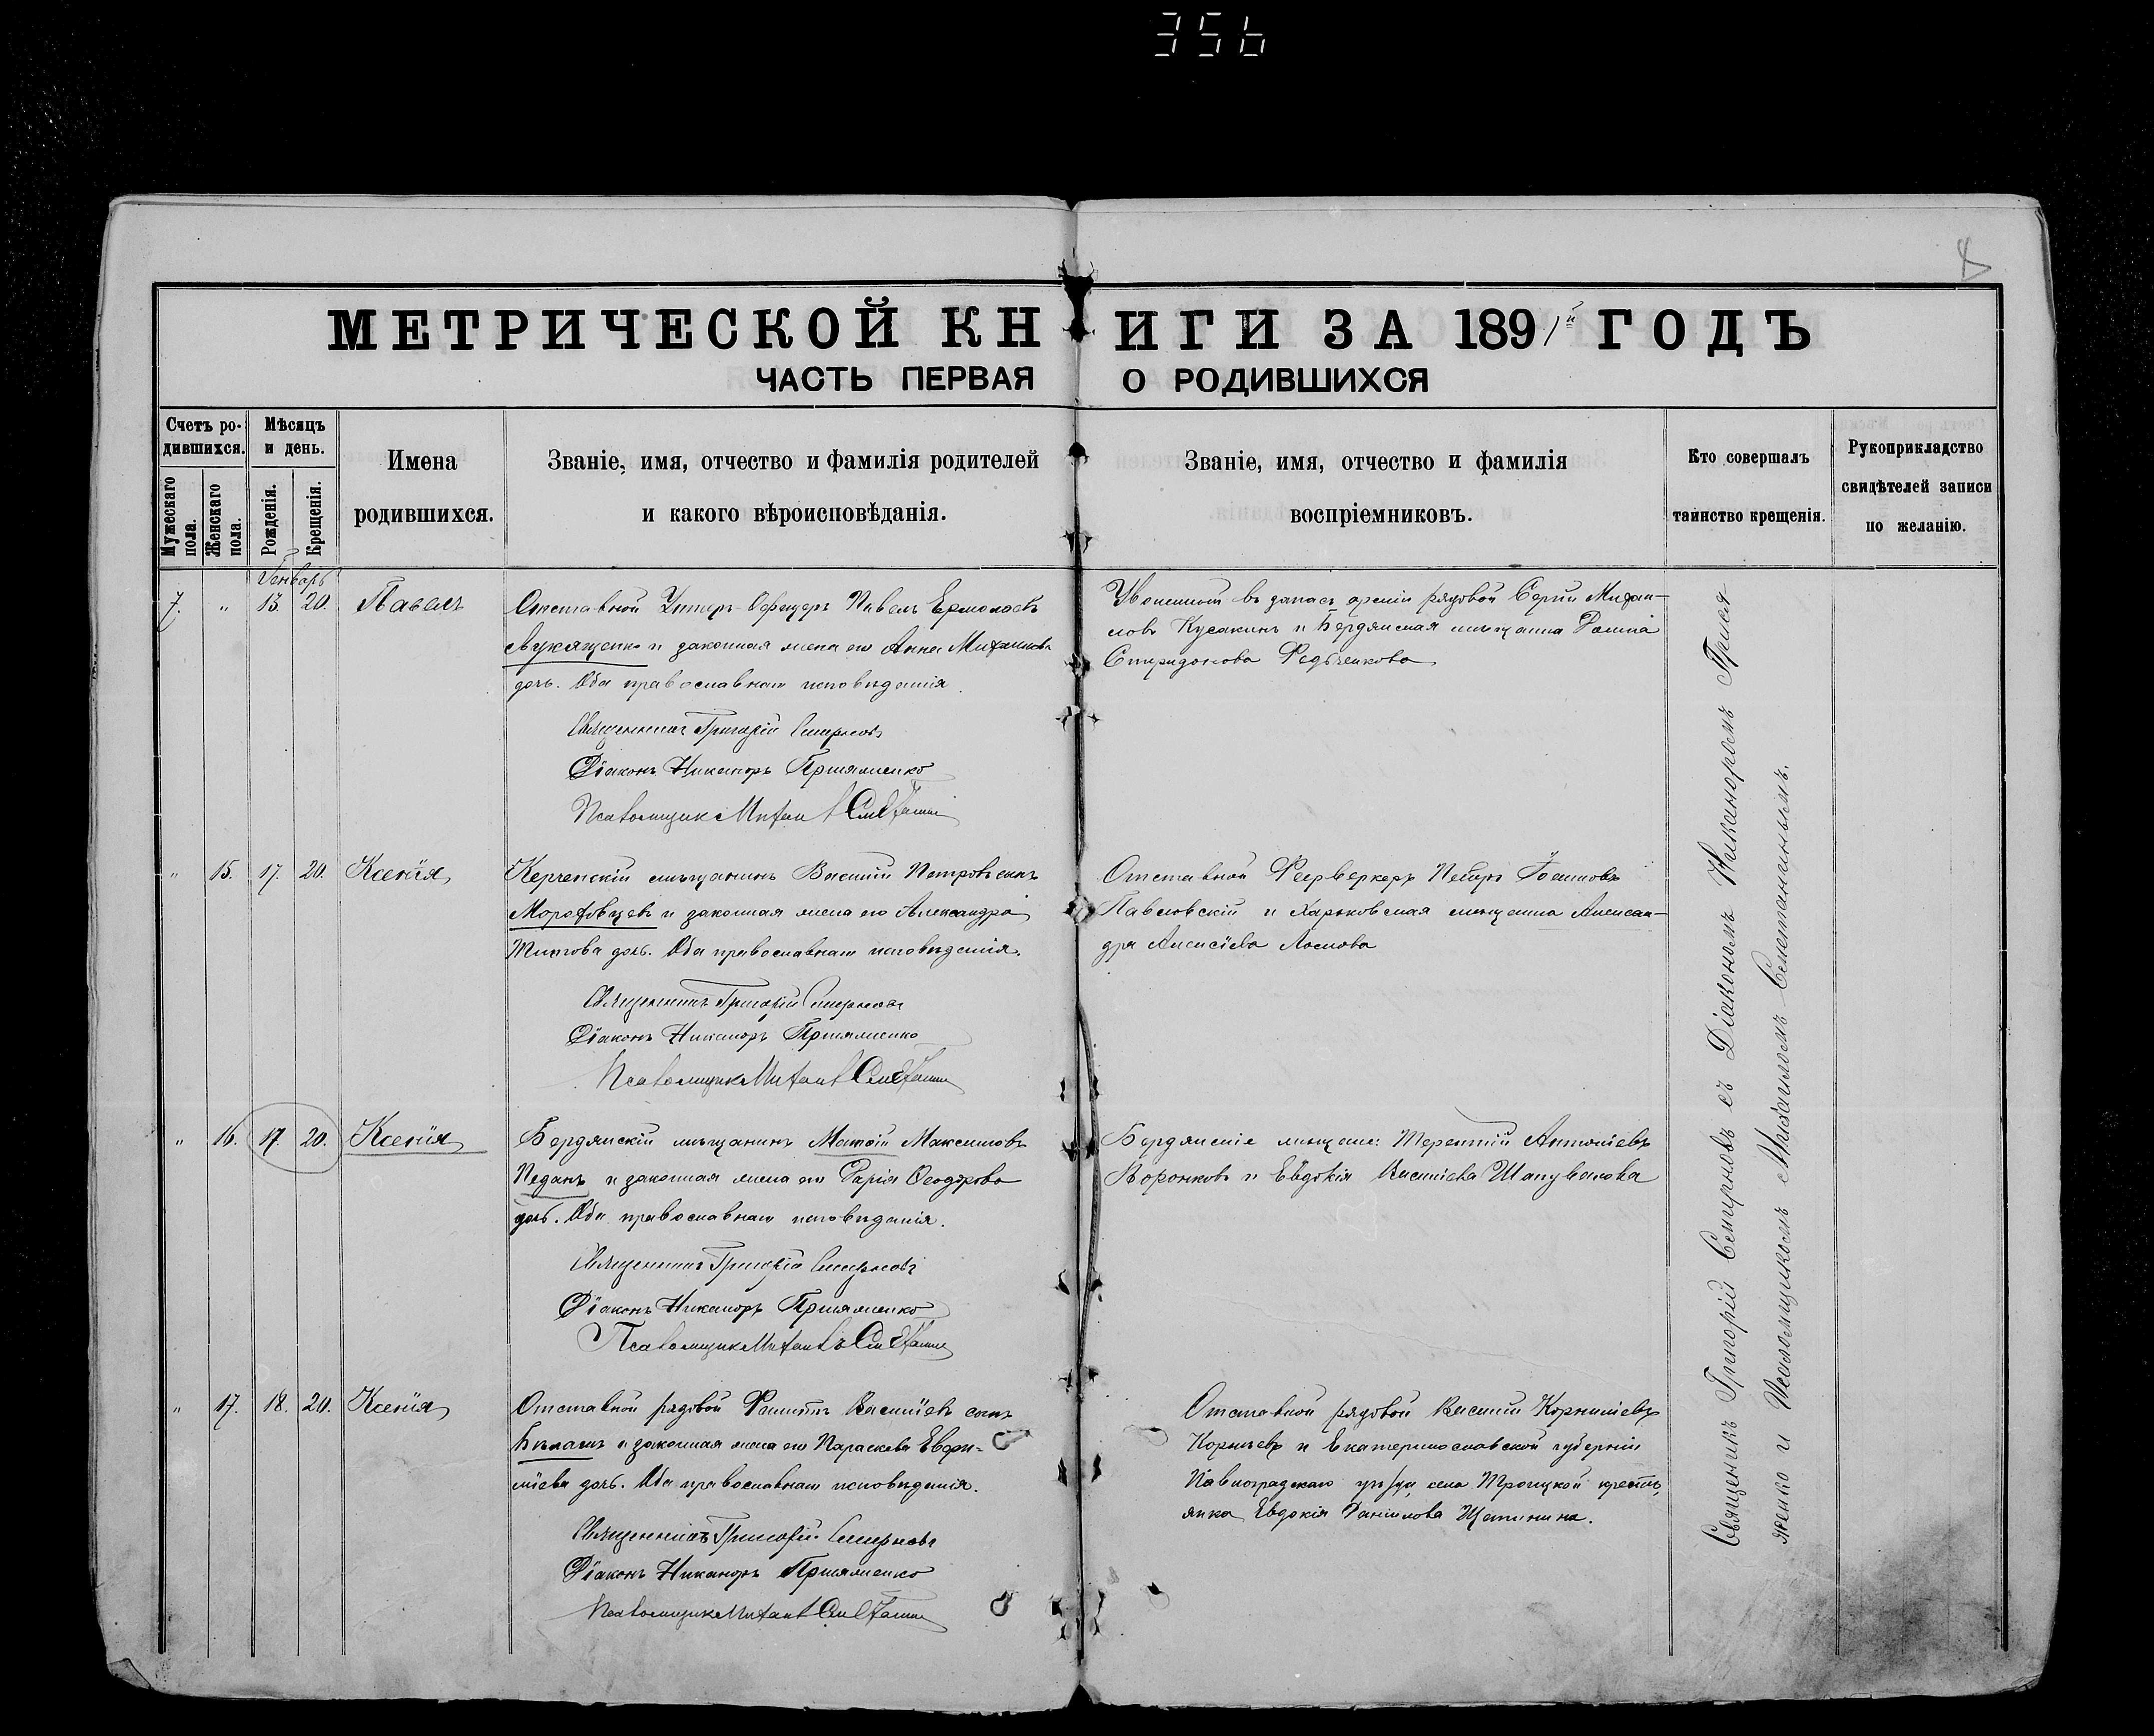 356
8
МЕТРИЧЕСКОЙ КНИГИ ЗА 1891й ГОДЪ
ЧАСТЬ ПЕРВАЯ О РОДИВШИХСЯ
Счетъ ро-
дившихся.
Мужескаго пола.
Женскаго пола.
Мѣсяцъ
и день.
Рожденія.
Крещенія.
Имена
родившихся.
Званіе, имя, отчество и фамилія родителей
и какого вѣроисповѣданія.
Званіе, имя, отчество и фамилія
воспріемниковъ.
Кто совершалъ
таинство крещенія.
Рукоприкладство
свидѣтелей записи
по желанію.
Генварь
7. " 13. 20. Павелъ
Отставной Унтеръ-Офицеръ Павелъ Ермолаевъ
Лукященко и законная жена его Анна Михаилова
дочь. Оба православнаго исповѣданія.
Священникъ Григорій Смирновъ
Діаконъ Никаноръ
Псаломщикъ Михаилъ
Уволенный въ запасъ арміи рядовой Сергій Михаи-
ловъ Кусакинъ и Бердянская мѣщанка
Спиридонова Федченкова
" 15. 17. 20. Ксенія
Керченскій мѣщанинъ Василій Петровъ сынъ
и законная жена его Александра
Титова дочь. Оба православнаго исповѣданія.
Священникъ Григорій Смирновъ
Діаконъ Никаноръ
Псаломщикъ Михаилъ
Отставной Фейерверкеръ Петръ
Павловскій и Харьковская мѣщанка Алексан-
дра Алексіева
" 16. 17. 20. Ксенія
Бердянскій мѣщанинъ Матѳій Максимовъ
Педанъ и законная жена его Дарія Ѳеодорова
дочь. Оба православнаго исповѣданія.
Священникъ Григорій Смирновъ
Діаконъ Никаноръ
Псаломщикъ Михаилъ
Бердянскіе мѣщане: Терентій Антоніевъ
Воронковъ и Евдокія Василіева Шаповалова
" 17. 18. 20. Ксенія
Отставной рядовой Филиппъ Василіевъ сынъ
и законная жена его Параскева Евфи-
міева дочь. Оба православнаго исповѣданія.
Священникъ Григорій Смирновъ
Діаконъ Никаноръ
Псаломщикъ Михаилъ
Отставной рядовой Василій Корниліевъ
и Екатеринославской губерніи
Павлоградскаго уѣзда, села Троицкой крестъ-
янка Евдокія Даніилова Щетинина.
Священникъ Григорій Смирновъ съ Діакономъ Никаноромъ
и Псаломщикомъ Михаиломъ Сметаннымъ.